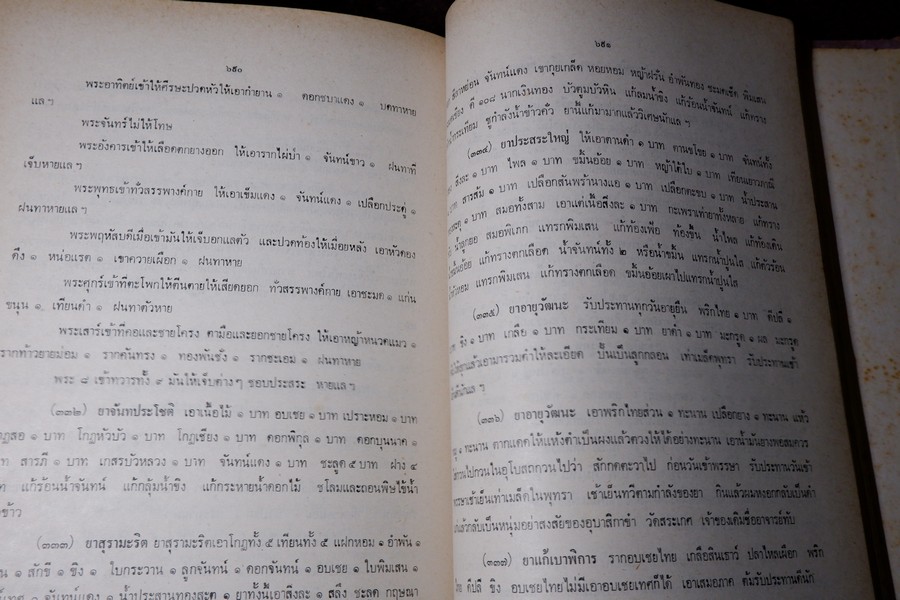 ๖๕๐
พระอาทิตย์เข้าให้ศีรษะปวดหัวให้เอากำยาน ๑ ดอกชบาแดง ๑ บดทาหาย
แล ฯ
พระจันทร์ไม่ให้โทษ
พระอังคารเข้าให้เลือดตกยางออก ให้เอารากไผ่ป่า ๑ จันทน์ขาว ๑ ฝนทาที่
เจ็บหายแล ฯ
พระพุทธเข้าทั่วสรรพางค์กาย ให้เอาเข็มแดง ๑ จันทน์แดง ๑ เปลือกประดู่ ๑
ฝนทาหายแล ฯ
พระพฤหัสบดีเมื่อเข้ามันให้เจ็บอกแลตัว และปวดท้องให้เมื่อยหลัง เอาหัวดอง
ดึง ๑ หนอแรด ๑ เขาควายเผือก ๑ ฝนทาหาย
พระศุกร์เข้าที่ตะโพกให้ตีนตายให้เสียดยอก ทั่วสรรพางค์กาย เอาชะมด ๑ แก่น
ขนุน ๑ เทียนดำ ๑ ฝนทาตัวหาย
พระเสาร์เข้าที่คอและชายโครง ตามือและยอกชายโครง ให้เอาหญ้าหนวดแมว ๑
รากท้าวยายม่อม ๑ รากคันทรง ๑ ทองพันชั่ง ๑ รากชะเอม ๑ ฝนทาหาย
พระ ๘ เข้าทวารทั้ง ๙ มันให้เจ็บต่างๆ ชอบประสระ หายแล ฯ
(๓๓๒) ยาจันทประโชติ เอาเนื้อไม้ ๑ บาท อบเชย ๑ บาท เปราะหอม ๑ บาท
สอ ๑ บาท โกฎหัวบัว ๑ บาท โกฎเชียง ๑ บาท ดอกพิกุล ๑ บาท ดอกบุนนาค ๑
สารภี ๑ บาท เกสรบัวหลวง ๑ บาท จันทน์แดง ๑ บาท ชะลูด ๕ บาท ฝาง ๔
แก้ร้อนน้ำจันทน์ แก้กลุ้มน้ำขิง แก้กระหายน้ำดอกไม้ ชโลมและถอนพิษไข้น้ำ
ข้าว
(๓๓๓) ยาสุรามะริต ยาสุรามะริตเอาโกฎทั้ง ๕ เทียนทั้ง ๕ แฝกหอม ๑ อำพัน ๑
๑ สักขี ๑ ขิง ๑ ใบกระวาน ๑ ลูกจันทน์ ๑ ดอกจันทน์ ๑ อบเชย ๑ ใบพิมเสน ๑
๑ จันทน์แดง ๑ น้ำประสานทองสะตุ ๑ ยาทั้งนี้เอาสิ่งละ ๑ สลึง ชะลูด กฤษณา
๖๕๑
จันทน์แดง เขากุยเกล็ด หอยหอม หญ้าฝรั่น อำพันทอง ชะมดเช็ด พิมเสน
ตี ๑๐๘ นากเงินทอง บัวตูมบัวหิน แก้ลมน้ำขิง แก้ร้อนน้ำจันทน์ แก้ทราง
กระเทียม ชูกำลังน้ำข้าวคั่ว ยานี้แก้มามากแล้ววิเศษนักแล ฯ
(๓๓๔) ยาประสระใหญ่ ให้เอาตานดำ ๑ บาท ตานขโมย ๑ บาท จันทน์ทั้ง
สิ่งละ ๑ บาท ไพล ๑ บาท ขมิ้นอ้อย ๑ บาท หญ้าใต้ใบ ๑ บาท เทียนเยาวภาณี
สารส้ม ๑ บาท เปลือกสันพร้านางแอ ๑ บาท เปลือกตะขบ ๑ บาท น้ำประสาน
๑ บาท สมอทั้งสาม เอาแต่เนื้อสิ่งละ ๑ บาท กะเพราเท่ายาทั้งหลาย แก้ทราง
น้ำลูกยอ สมอพิเภก แทรกพิมเสน แก้ท้องเฟ้อ ท้องขึ้น น้ำไพล แก้ท้องเดิน
แก้ทรางตกเลือด น้ำจันทน์ทั้ง ๒ หรือน้ำขมิ้น แทรกน้ำปูนใส แก้ตัวร้อน
แทรกพิมเสน แก้ทรางตกเลือด ขมิ้นอ้อยเผาไปแทรกน้ำปูนใส
(๓๓๕) ยาอายุวัฒนะ รับประทานทุกวันอายุยืน พริกไทย ๑ บาท ดีปลี ๑
ขิง ๑ บาท เกลือ ๑ บาท กระเทียม ๑ บาท ยาดำ ๑ บาท มะกรูด ๑ ผล มะกรูด
แล้วเอามารวมตำให้ละเอียด ปั้นเป็นลูกกลอน เท่าเมล็ดพุทรา รับประทานเช้า
แล ฯ
(๓๓๖) ยาอายุวัฒนะ เอาพริกไทยส่วน ๑ ทะนาน เปลือกยาง ๑ ทะนาน แห้ว
๑ ทะนาน ตากแดดให้แห้งตำเป็นผงแล้วตวงให้ได้อย่างทะนาน เอาน้ำมันยางพอสมควร
กวนไปกวนในอุโบสถกวนไปว่า สักกัตตะวาไป ก่อนวันเข้าพรรษา รับประทานวันเข้า
พรรษาเช้าเย็นเท่าเมล็ดในพุทรา เช้าเย็นทวีตามกำลังของยา กินแล้วผมหงอกกลับเป็นดำ
แล้วกลับเป็นหนุ่มอย่าสงสัยของอุบาสิกาขำ วัดสระเกศ เจ้าของเดิมชื่ออาจารย์ทับ
(๓๓๗) ยาแก้เบาพิการ รากอบเชยไทย เกลือสินเธาว์ ปลาไหลเผือก พริก
ไทย ดีปลี ขิง อบเชยไทยไม่มีเอาอบเชยเทศก็ได้ เอาเสมอภาค ต้มรับประทานดีนัก